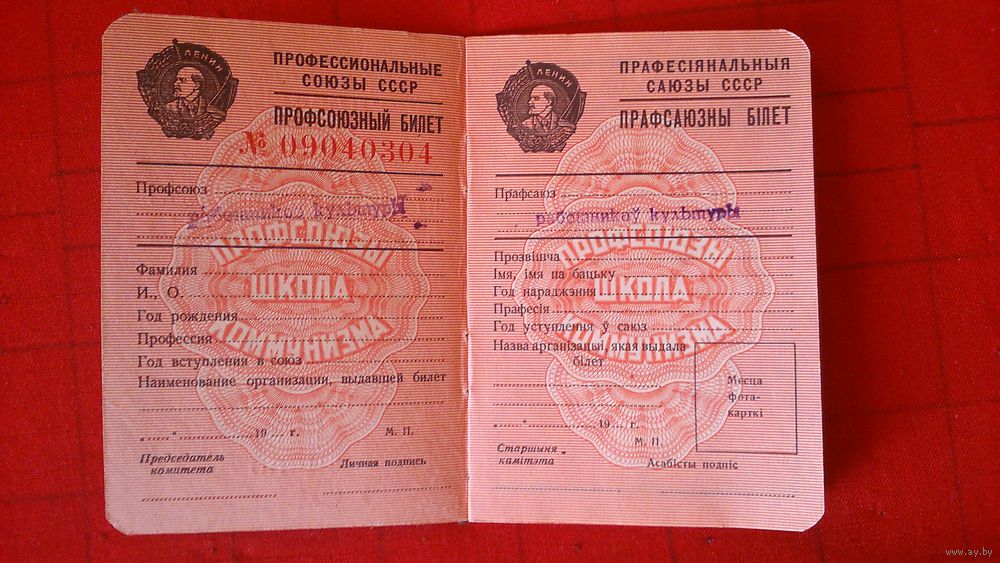 ЛЕНИН
ПРОФЕССИОНАЛЬНЫЕ
СОЮЗЫ СССР
ПРОФСОЮЗНЫЙ БИЛЕТ
№ 09040304
Профсоюз
работников культуры
ПРОФСОЮЗЫ
ШКОЛА
КОММУНИЗМА
Фамилия
И., О.
Год рождения
Профессия
Год вступления в союз
Наименование организации, выдавшей билет
„ “ 19 г. М. П.
Председатель
комитета
Личная подпись
ЛЕНИН
ПРАФЕСІЯНАЛЬНЫЯ
САЮЗЫ СССР
ПРАФСАЮЗНЫ БІЛЕТ
Прафсаюз
работнікаў культуры
ПРОФСОЮЗЫ
ШКОЛА
КОММУНИЗМА
Прозвішча
Імя, імя па бацьку
Год нараджэння
Прафесія
Год уступлення ў саюз
Назва арганізацыі, якая выдала
білет
Месца
фота-
карткі
„ “ 19 г.
М. П.
Старшыня
камітэта
Асабісты подпіс
www.ay.by